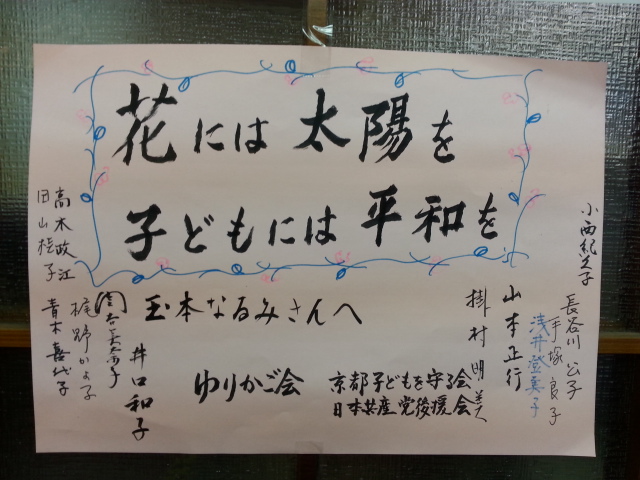 花には太陽を
子どもには平和を
玉本なるみさんへ
ゆりかご会
京都子どもを守る会
日本共産党後援会
小西紀美子
長谷川公子
手塚良子
浅井登美子
山本正行
掛村明美
井口和子
関谷美奈子
梶野かよ子
青木喜代子
高木政江
田山桂子